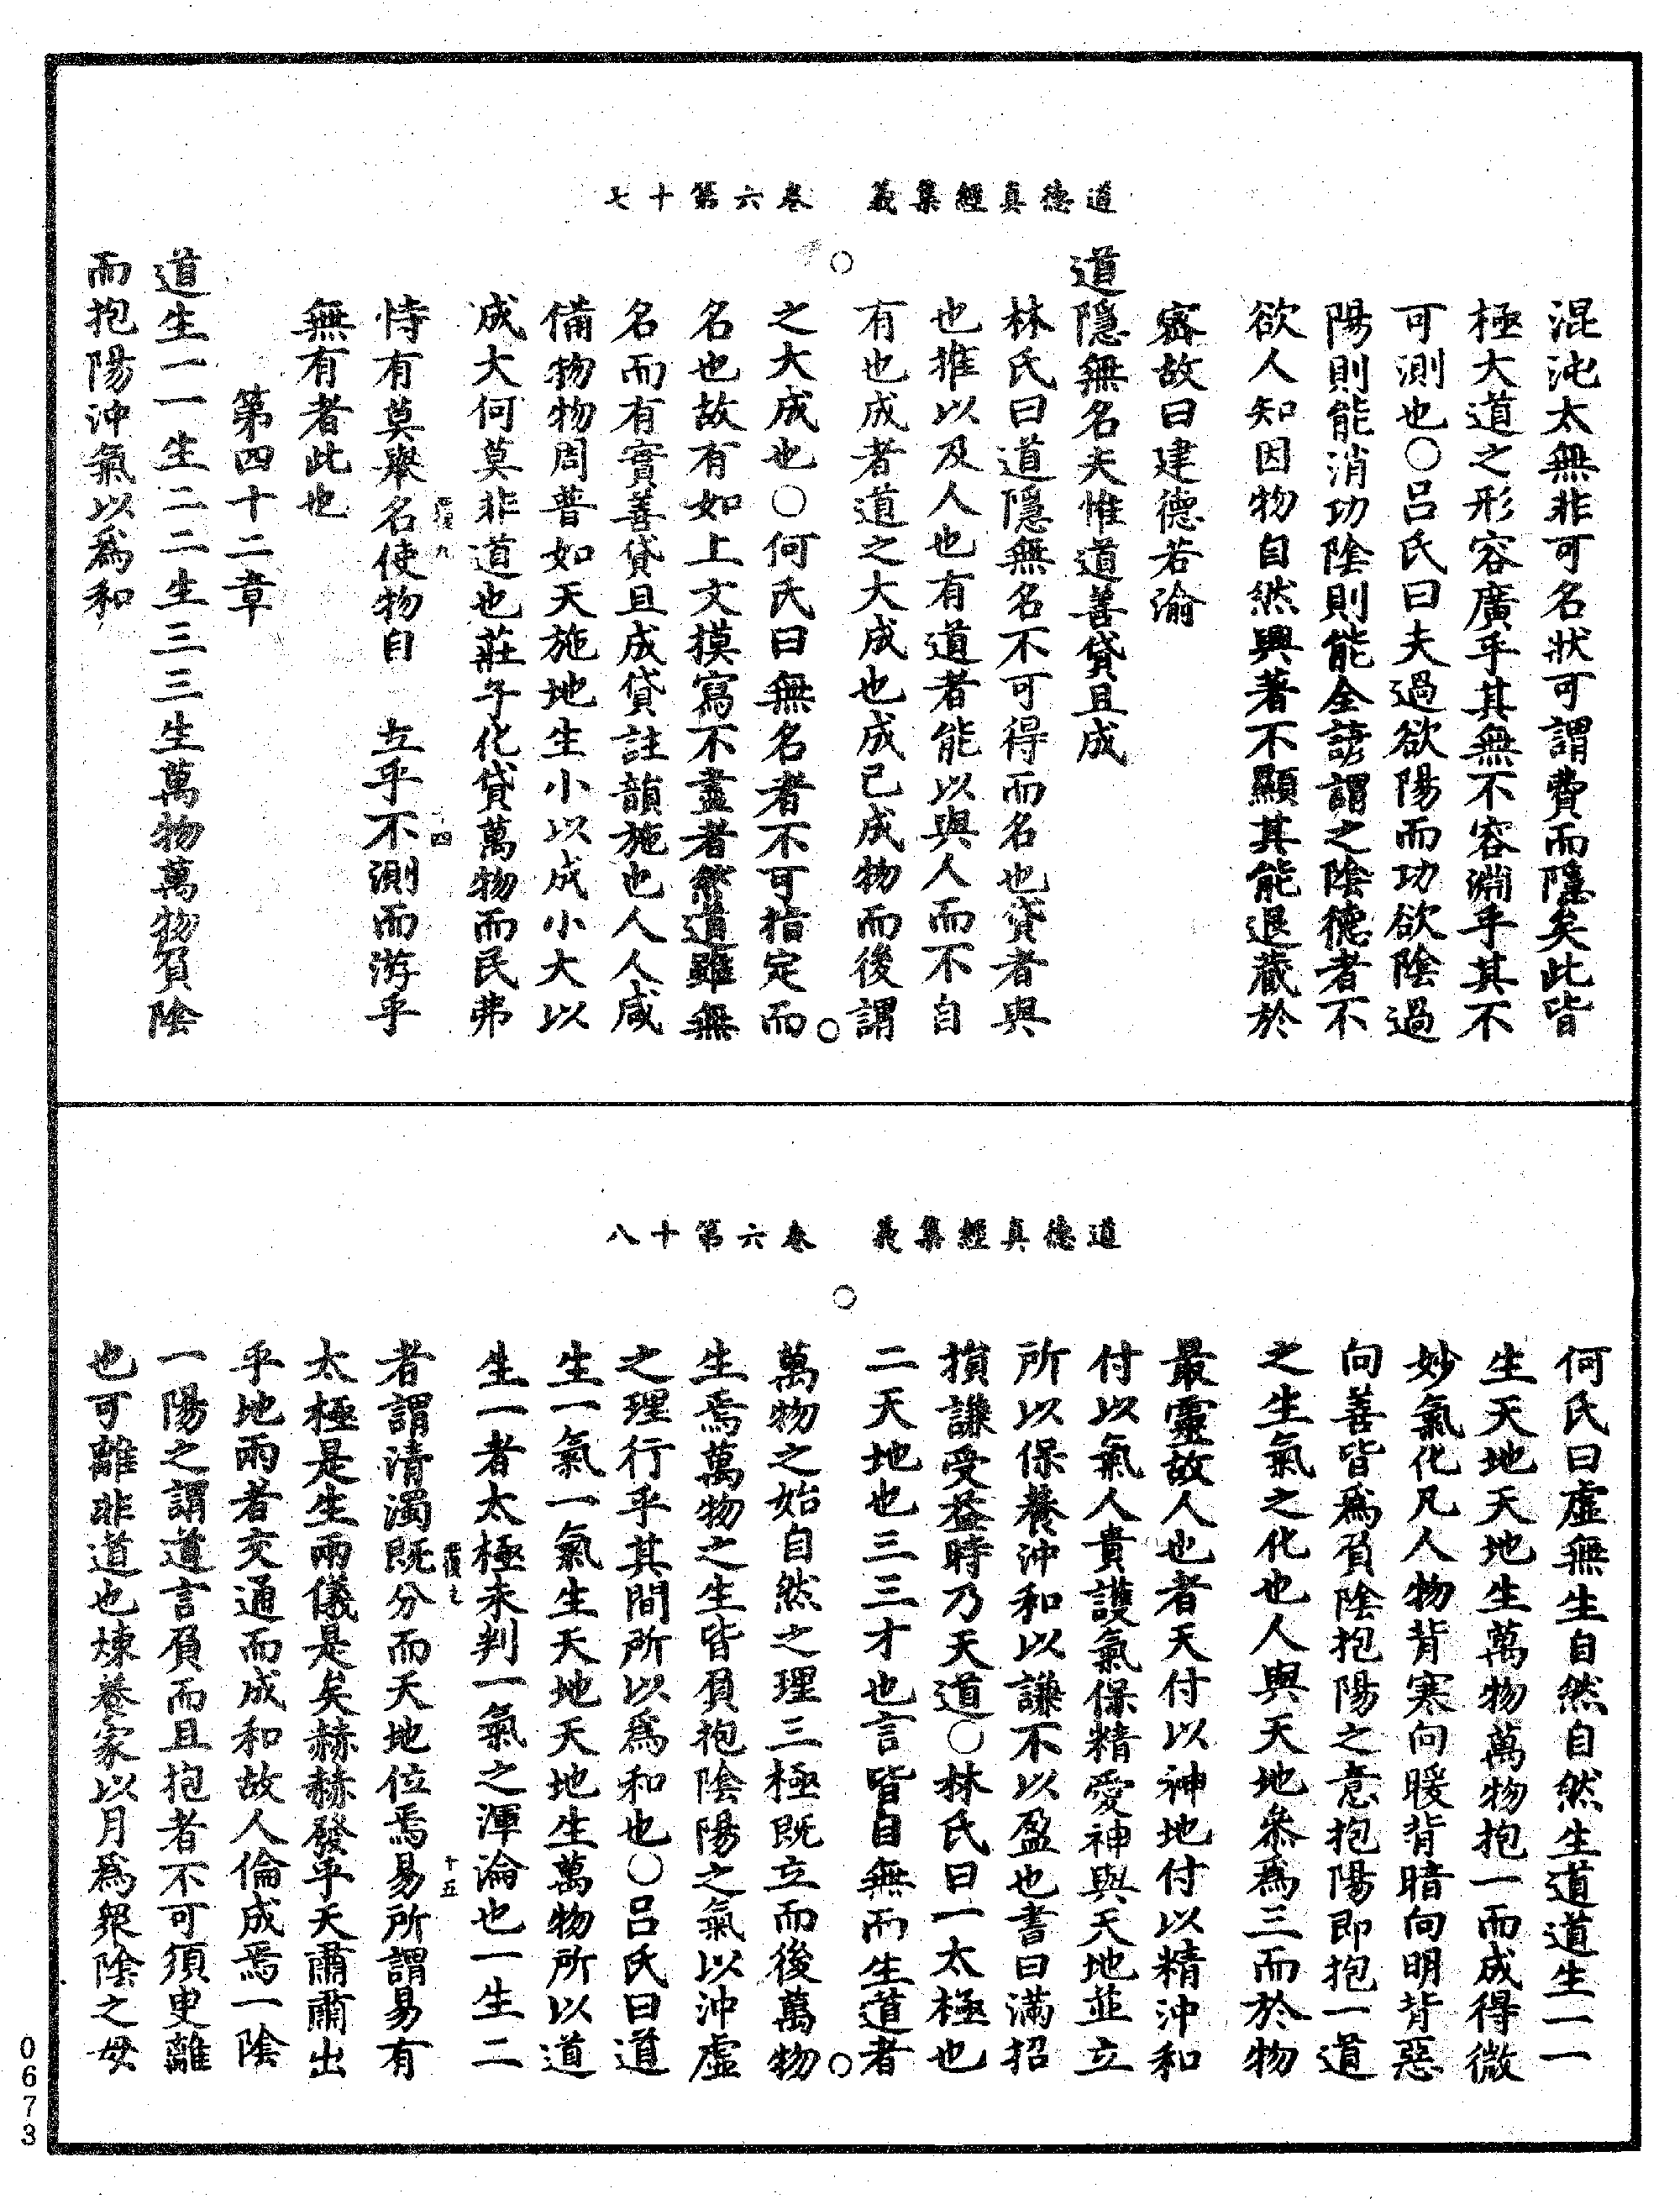 道德真經集義　卷六第十七
混沌太無非可名狀可謂費而隱矣此皆
極大道之形容廣乎其無不容淵乎其不
可測也○呂氏曰夫過欲陽而功欲陰過
陽則能消功陰則能全諺謂之陰德者不
欲人知因物自然興著不顯其能退藏於
密故曰建德若渝
道隱無名夫惟道善貸且成
林氏曰道隱無名不可得而名也貸者與
也推以及人也有道者能以與人而不自
有也成者道之大成也成已成物而後謂
之大成也○何氏曰無名者不可指定而
名也故有如上文摸寫不盡者然道雖無
名而有實善貸且成貸註韻施也人人咸
備物物周普如天施地生小以成小大以
成大何莫非道也莊子化貸萬物而民弗
恃有莫舉名使物自　立乎不測而游乎
無有者此也
第四十二章
道生一一生二二生三三生萬物萬物負陰
而抱陽沖氣以爲和
道德真經集義　卷六第十八
何氏曰虛無生自然自然生道道生一一
生天地天地生萬物萬物抱一而成得微
妙氣化凡人物背寒向暖背暗向明背惡
向善皆爲負陰抱陽之意抱陽即抱一道
之生氣之化也人與天地參爲三而於物
最靈故人也者天付以神地付以精沖和
付以氣人貴護氣保精愛神與天地並立
所以保養沖和以謙不以盈也書曰滿招
損謙受益時乃天道○林氏曰一太極也
二天地也三三才也言皆自無而生道者
萬物之始自然之理三極既立而後萬物
生焉萬物之生皆負抱陰陽之氣以沖虛
之理行乎其間所以爲和也○呂氏曰道
生一氣一氣生天地天地生萬物所以道
生一者太極未判一氣之渾淪也一生二
者謂清濁既分而天地位焉易所謂易有
太極是生兩儀是矣赫赫發乎天肅肅出
乎地兩者交通而成和故人倫成焉一陰
一陽之謂道言負而且抱者不可須臾離
也可離非道也煉養家以月爲衆陰之母
0673